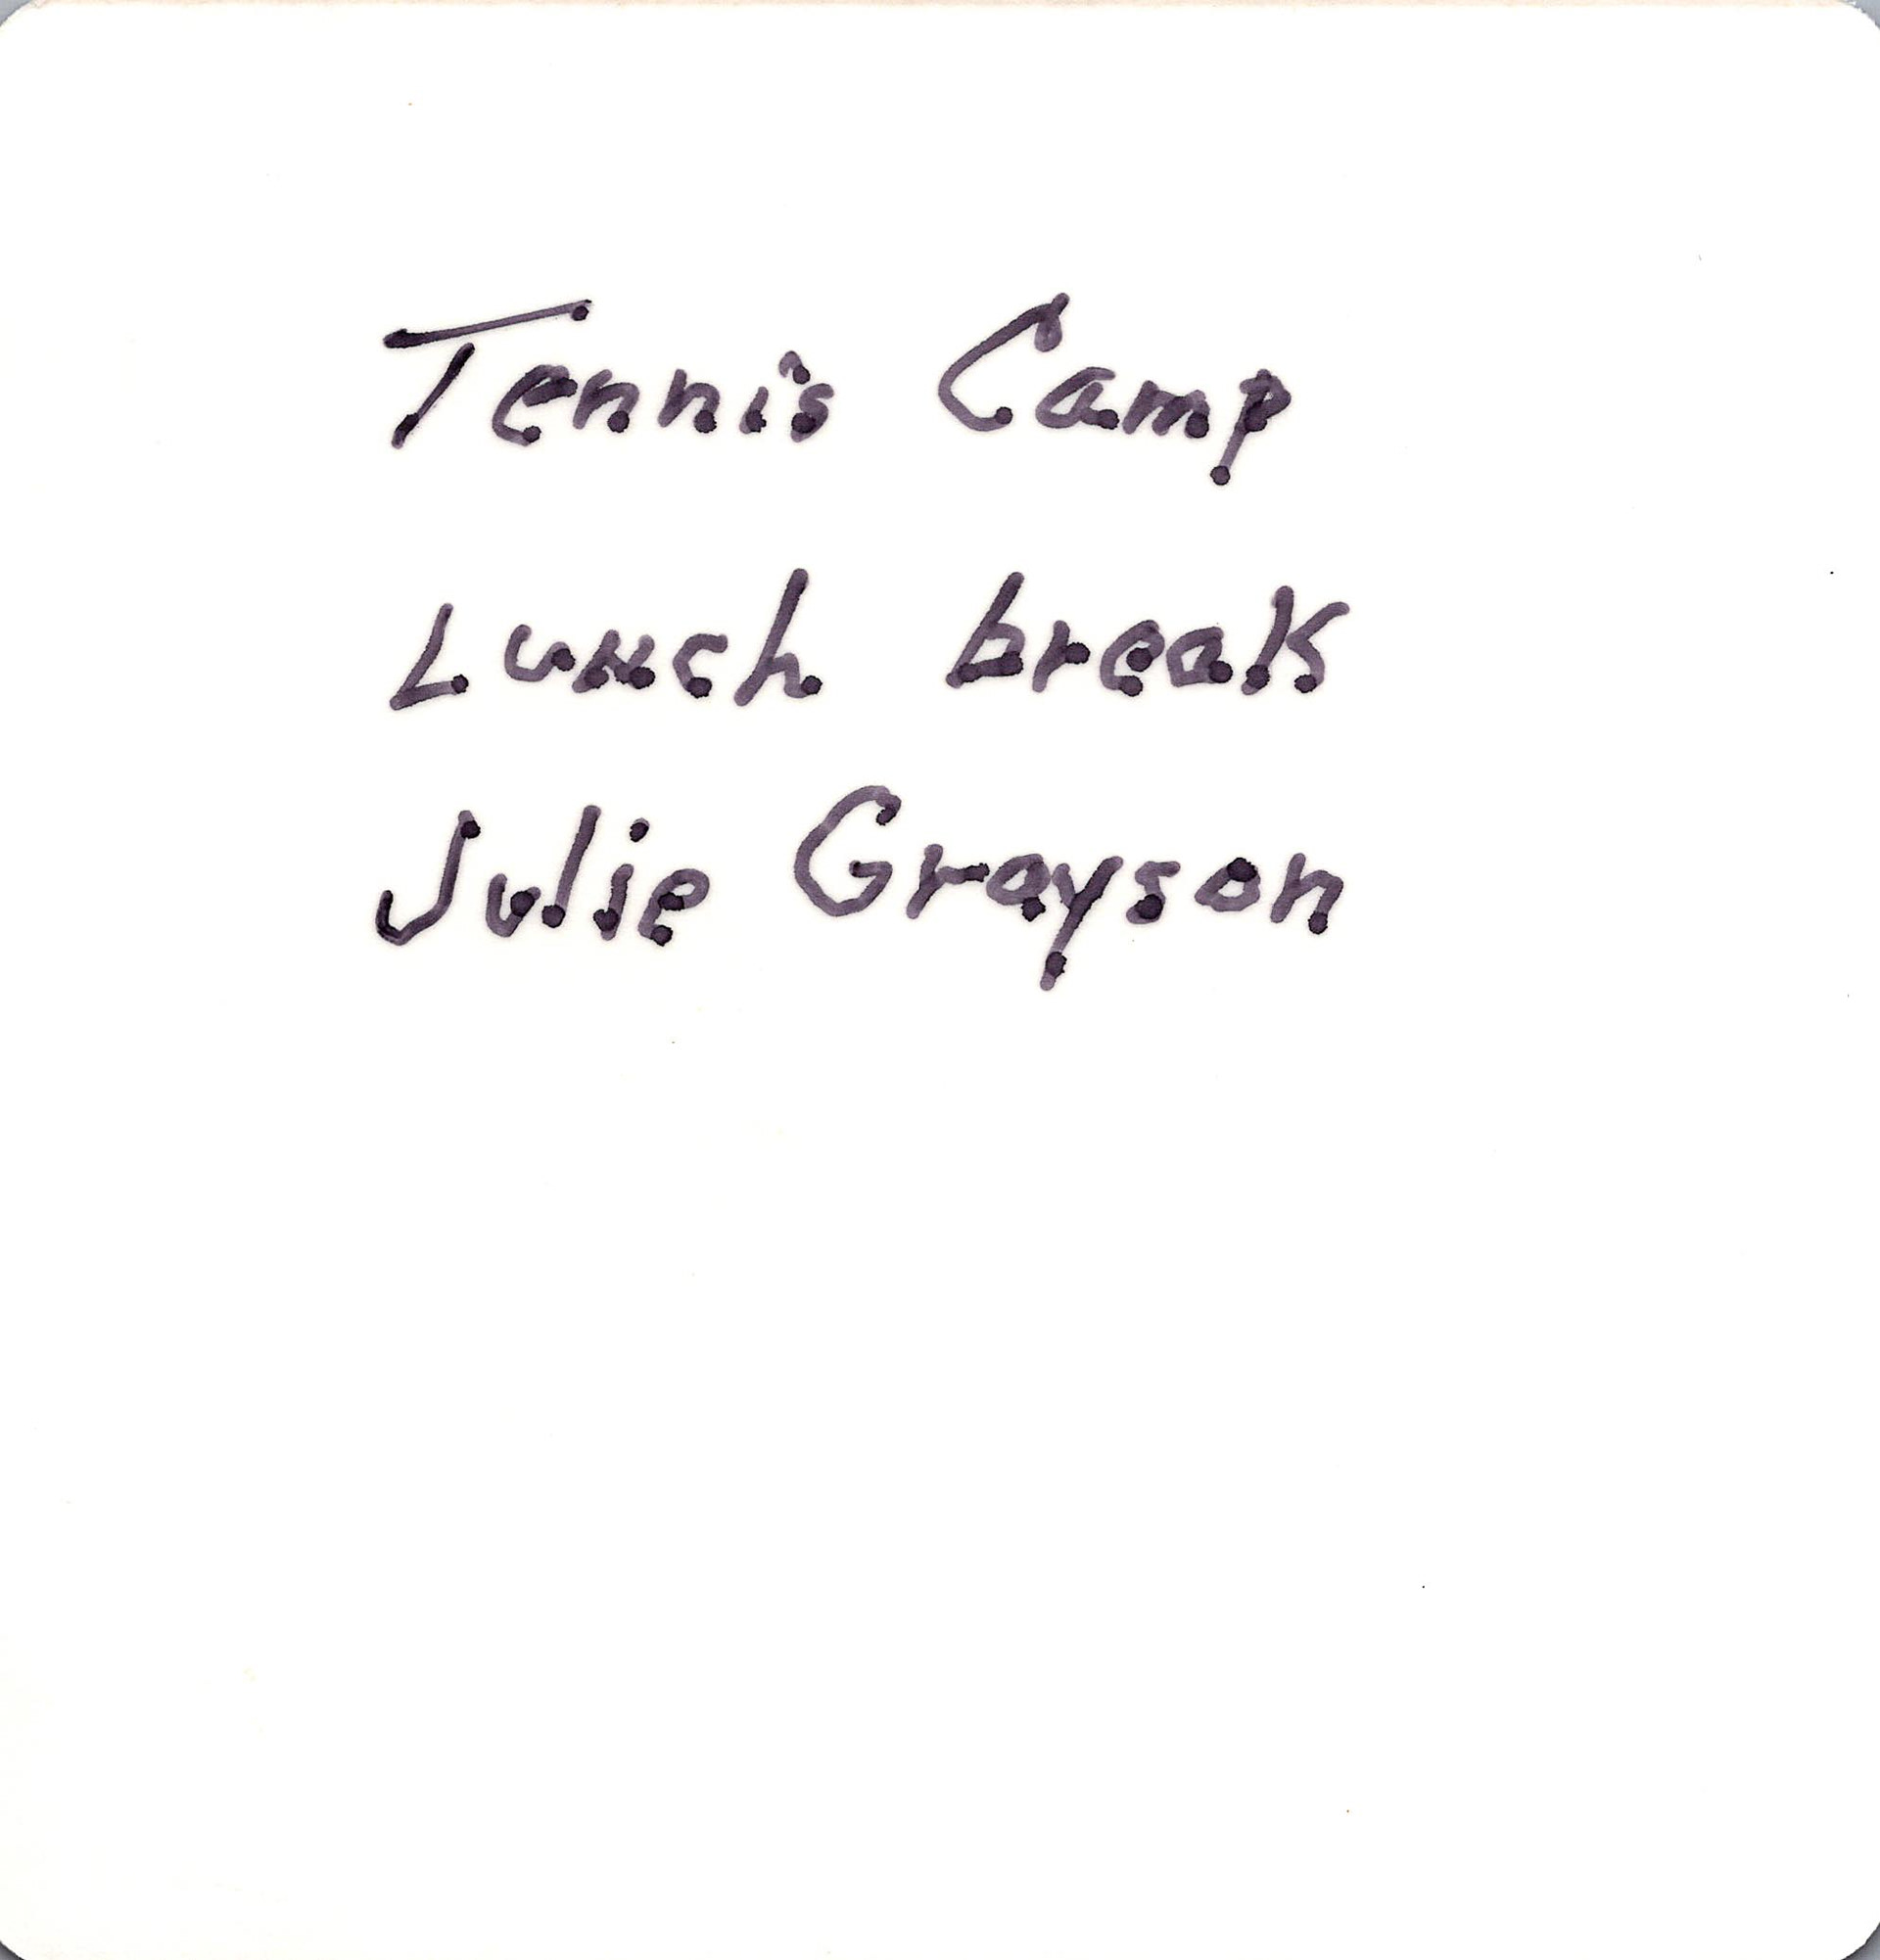 Tennis Camp
Lunch break
Julie Grayson